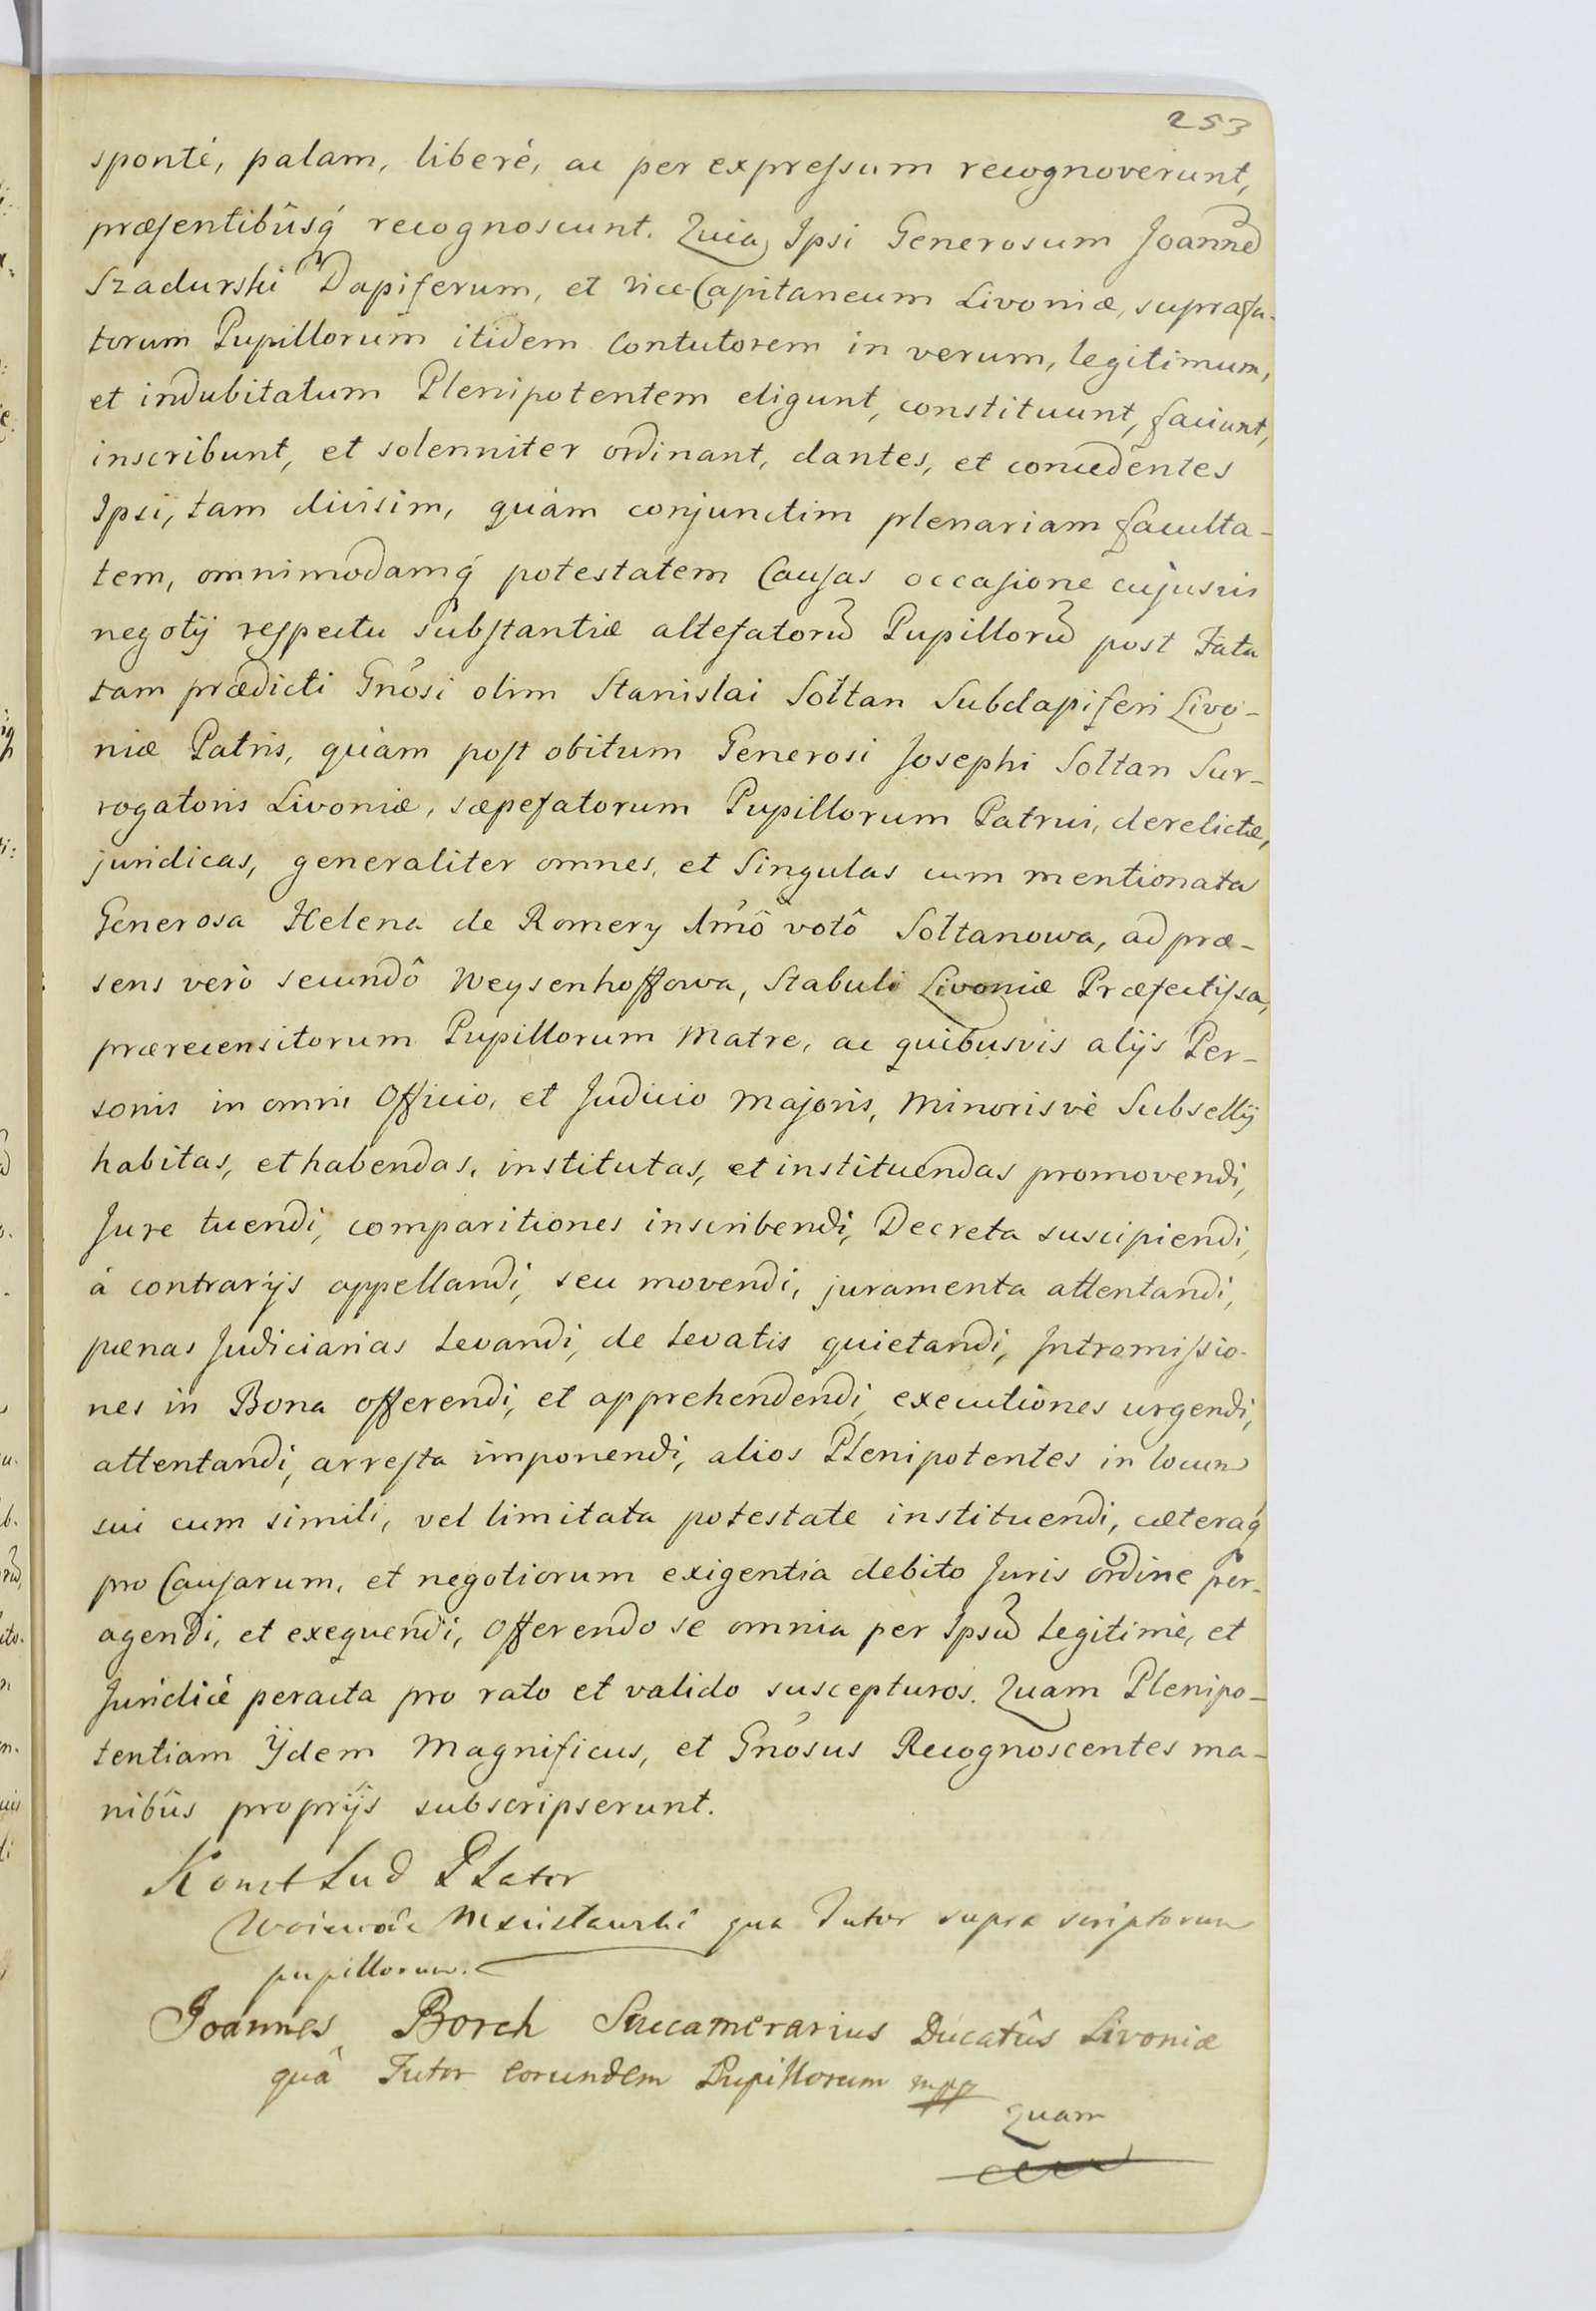 253
spontè, palam, liberè, ac per expressum recognoverunt,
præsentibûsq́ recognoscunt. Quia Ipsi Generosum Joannē
Szadurski Dapiferum, et Vice-Capitaneum Livoniæ, suprafa-
torum Pupillorum itidem Contutorem in verum, legitimum,
et indubitatum Plenipotentem eligunt, constituunt, faciunt,
inscribunt, et solenniter ordinant, dantes, et concedentes
Ipsi, tam divisim, quàm conjunctim plenariam faculta-
tem, omnimodamq́ potestatem Causas occasione cujusvis
negotij respectu substantiæ altefatorū Pupillorū post Fata
tam prædicti Gnosi olim Stanislai Sołtan Subdapiferi Livo-
niæ Patris, quàm post obitum Generosi Josephi Sołtan Sur-
rogatoris Livoniæ, sæpefatorum Pupillorum Patrui, derelictæ,
juridicas, generaliter omnes, et Singulas cum mentionata
Generosa Helena de Romery 1mô votô Sołtanowa, ad præ-
sens verò secundô Weysenhoffowa, Stabuli Livoniæ Præfectissa,
prærecensitorum Pupillorum Matre, ac quibusvis alijs Per-
sonis in omni Officio, et Judicio Majoris, Minorisvè Subsellij
habitas, et habendas, institutas, et instituendas promovendi,
Jure tuendi, comparitiones inscribendi, Decreta suscipiendi,
à contrarijs appellandi, seu movendi, juramenta attentandi,
pænas Judiciarias levandi, de levatis quietandi, Intromissio-
nes in Bona offerendi, et apprehendendi, executiones urgendi,
attentandi, arresta imponendi, alios Plenipotentes in locum
sui cum simili, vel limitata potestate instituendi, cæteraq́
pro Causarum, et negotiorum exigentia debito Juris ordine per-
agendi, et exequendi, Offerendo se omnia per Ipsū legitimè, et
Juridicè peracta pro rato et valido suscepturos. Quam Plenipo-
tentiam Ijdem Magnificus, et Gnosus Recognoscentes ma-
nibûs proprijs subscripserunt.
Konst Lud Plater
Woiewoda Mscisławski qua Tutor supra scriptorum
pupillorum.
Joannes Borch Succamerarius Ducatûs Livoniæ
quâ Tutor eorundem Pupillorum mpp
Quam